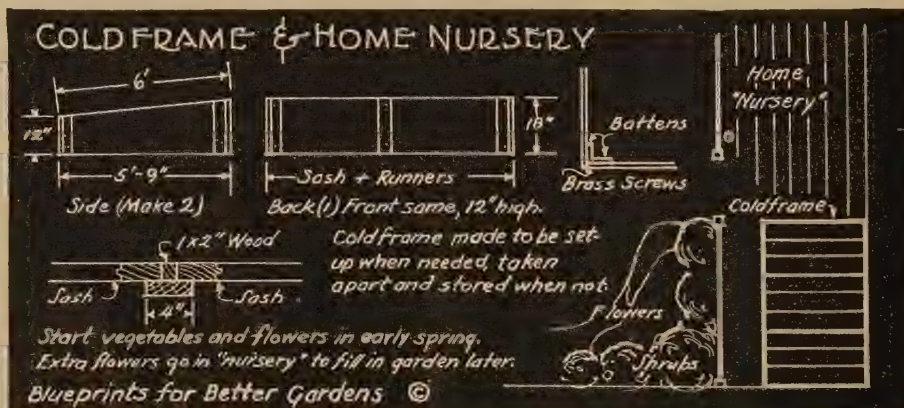 COLDFRAME & HOME NURSERY
6'
12"
5'-9"
Side (Make 2)
18"
Sash + Runners
Back (1) Front same, 12" high.
Battens
Brass Screws
Home
"Nursery"
Coldframe
1x2" Wood
Sash
Sash
4"
Coldframe made to be set-
up when needed, taken
apart and stored when not.
Flowers
Shrubs
Start vegetables and flowers in early spring.
Extra flowers go in "nursery" to fill in garden later.
Blueprints for Better Gardens ©